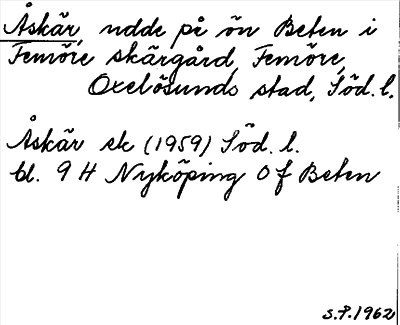 Åskär, udde på ön Beten i
Femöre skärgård, Femöre,
Oxelösunds stad, Söd. l.
Åskär ek (1959) Söd. l.
bl. 9 H Nyköping 0 f Beten
S.P. 1962